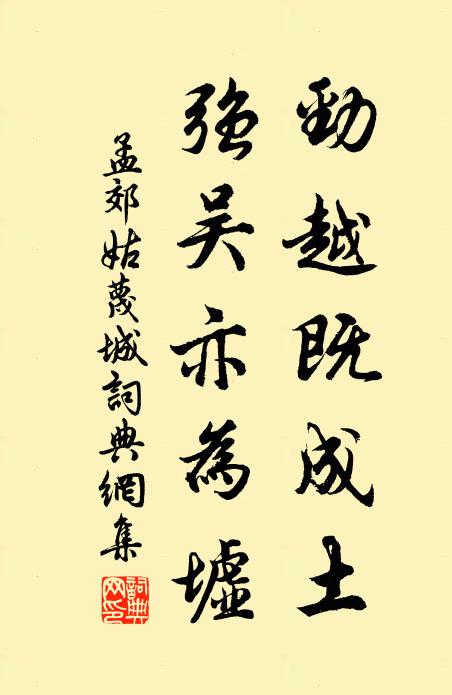 勁越既成土
強吴亦為墟
孟郊姑蔑城詞典網集
詞典網印